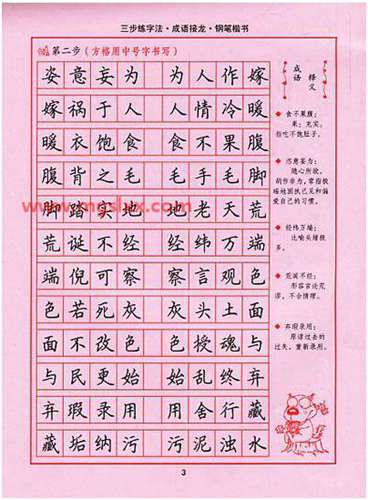 三步练字法·成语接龙·钢笔楷书
第二步(方格用中号字书写)
姿意妄为 为人作嫁
嫁祸于人 人情冷暖
暖衣饱食 食不果腹
腹背之毛 毛手毛脚
脚踏实地 地老天荒
荒诞不经 经纬万端
端倪可察 察言观色
色若死灰 灰头土面
面不改色 色授魂与
与民更始 始乱终弃
弃瑕录用 用舍行藏
藏垢纳污 污泥浊水
成语
释义
食不果腹:
果:充实。
指吃不饱肚子。
恣意妄为:
随心所欲,
胡作非为,常指极
端地固执己见和偏
爱自己的习惯。
经纬万端:
比喻头绪很
多。
荒诞不经:
形容言论荒
谬,不合情理。
弃瑕录用:
原谅过去的
过失,重新录用。
3